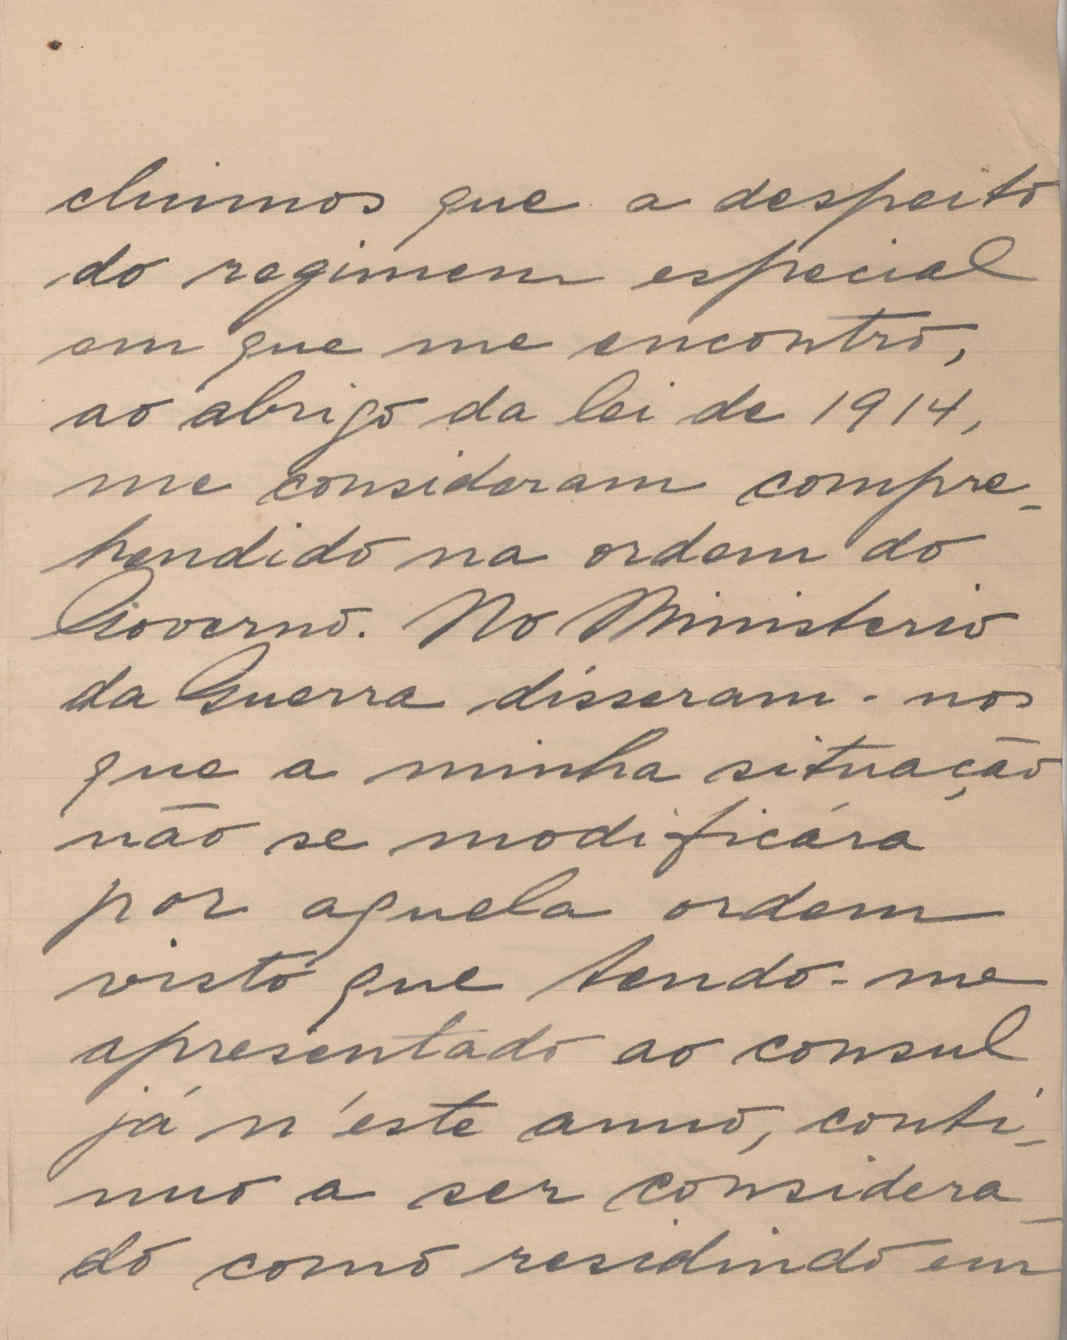 cluimos que a despeito
do regimem especial
em que me encontro,
ao abrigo da lei de 1914,
me consideram compre-
hendido na ordem do
Governo. No Ministerio
da Guerra disseram-nos
que a minha situação
não se modificára
por aquela ordem
visto que tendo-me
apresentado ao consul
já n'este anno, conti-
nuo a ser considera
do como residindo em